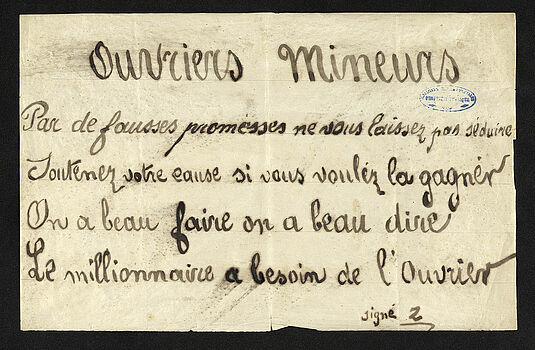 Ouvriers Mineurs
Par de fausses promesses ne vous laissez pas séduire
Soutenez votre cause si vous voulez la gagner
On a beau faire on a beau dire
Le millionnaire a besoin de l'Ouvrier
signé Z